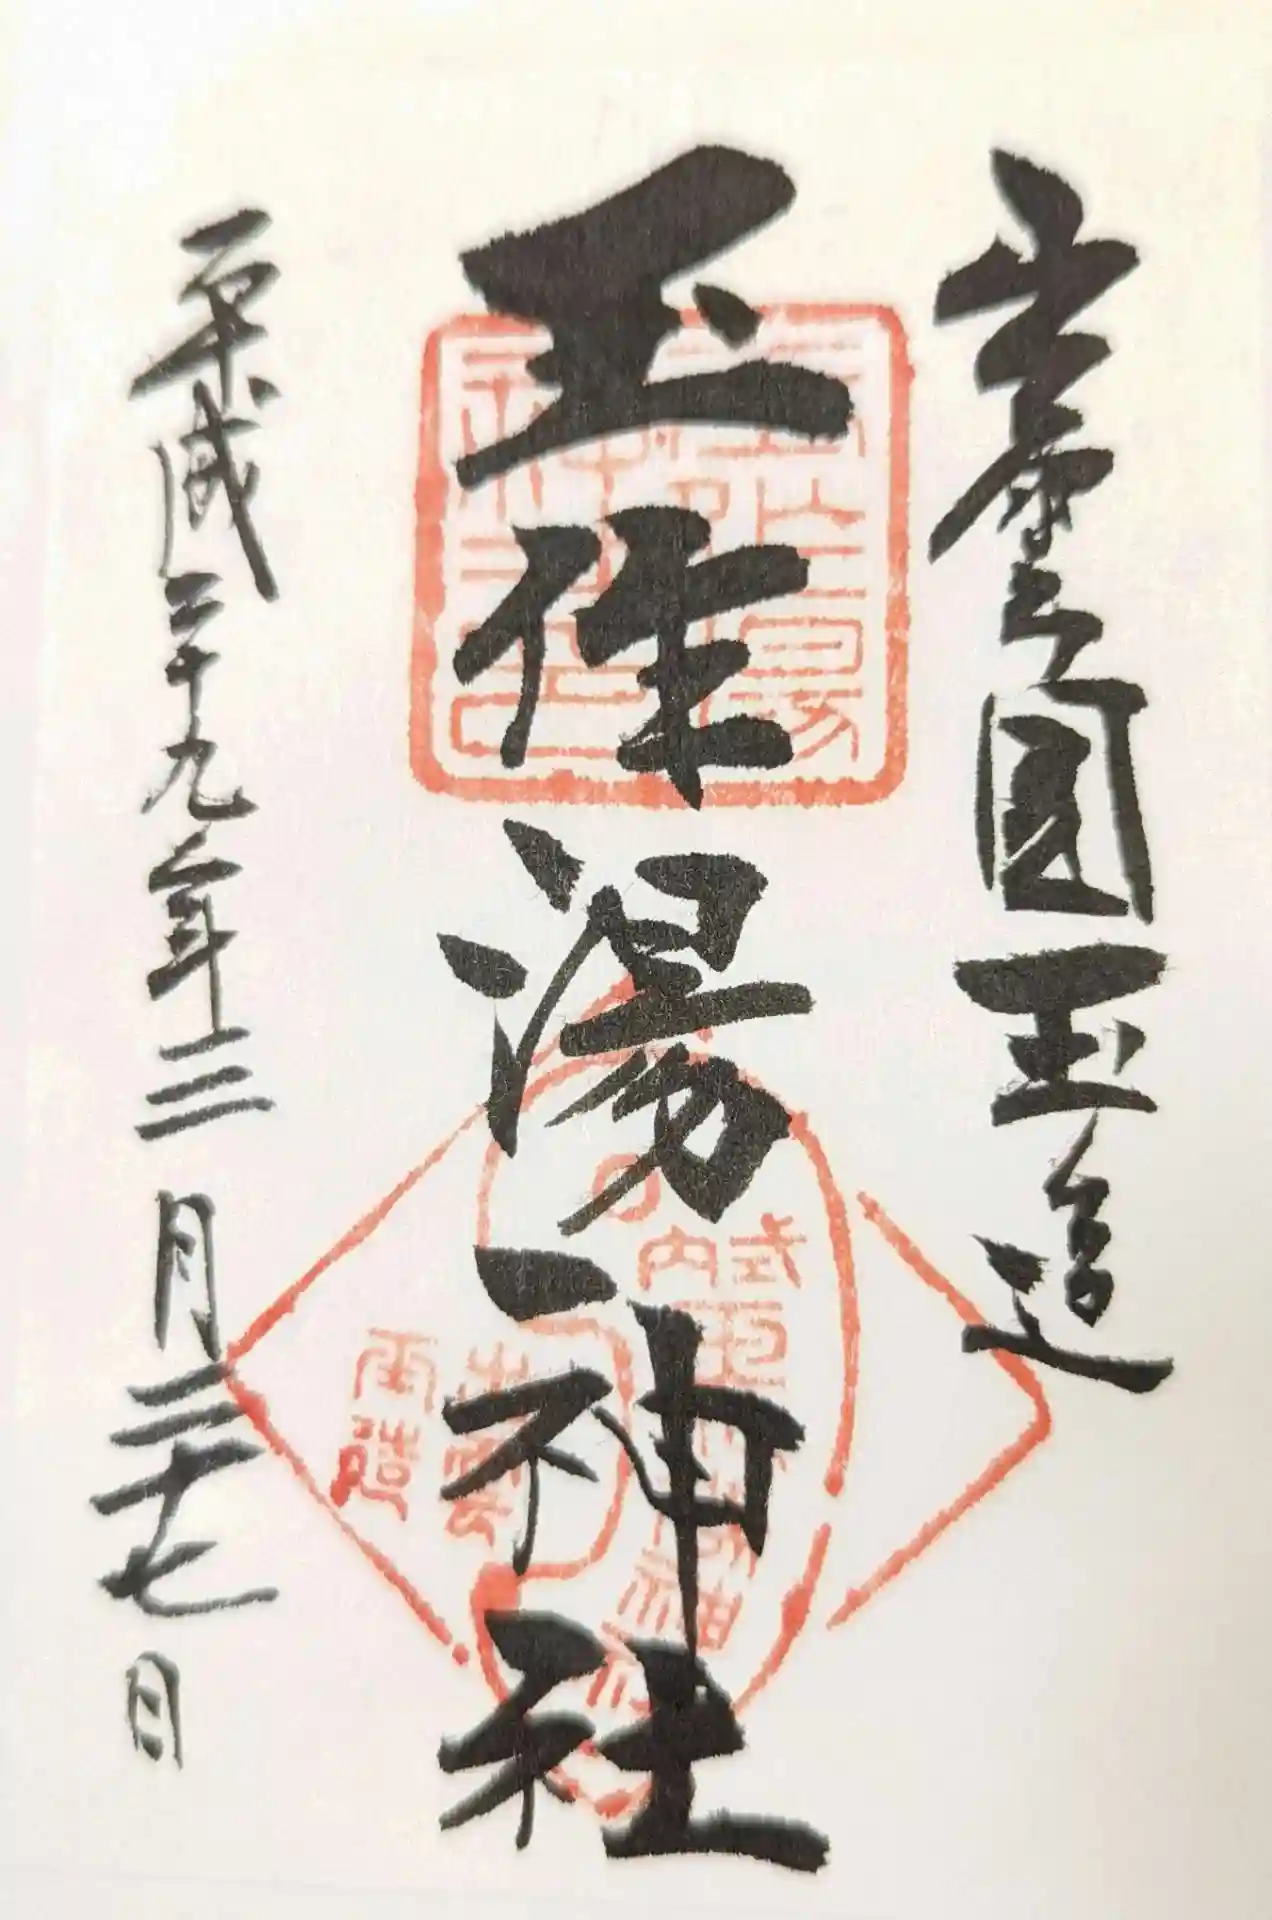 出雲國玉造
玉作湯神社
平成二十九年三月二十七日
玉作湯
神社之印
式内
出雲
玉造